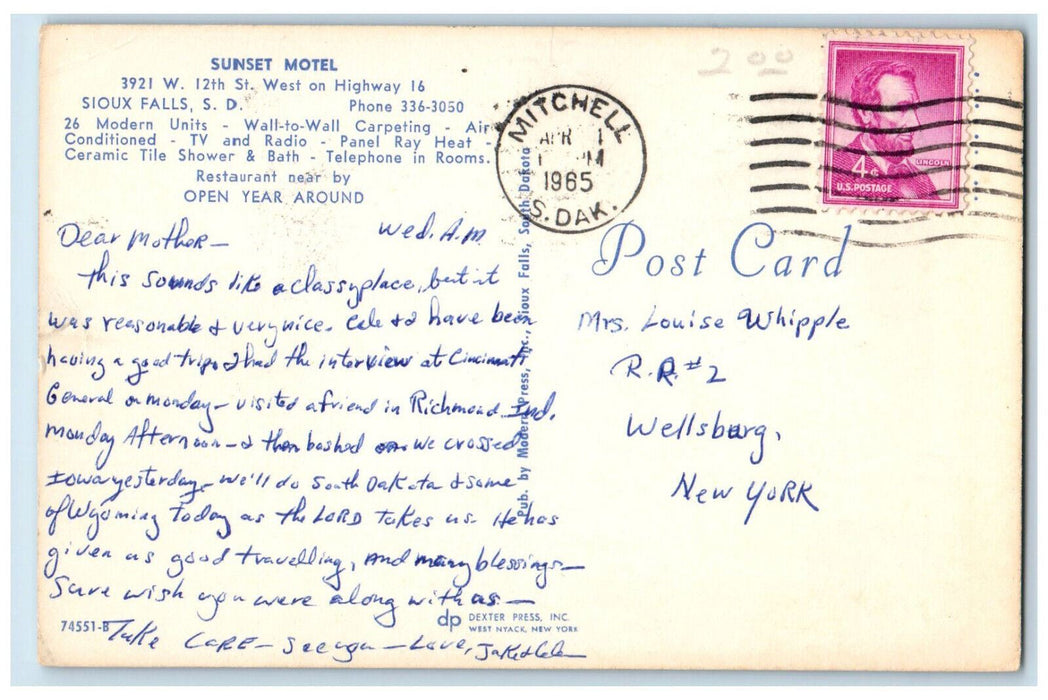 SUNSET MOTEL
3921 W. 12th St. West on Highway 16
SIOUX FALLS, S. D. Phone 336-3050
26 Modern Units - Wall-to-Wall Carpeting - Air
Conditioned - TV and Radio - Panel Ray Heat -
Ceramic Tile Shower & Bath - Telephone in Rooms.
Restaurant near by
OPEN YEAR AROUND
Dear Mother— Wed. A.M.
This sounds like a classy place, but it
was reasonable & very nice. & I have been
having a good trip. I had the interview at Cincinnati
General on Monday— visited a friend in Richmond Ind.
Monday Afternoon— & then bashed on— we crossed
Iowa yesterday— We'll do South Dakota & some
of Wyoming Today as the LORD takes us. He has
given us good travelling, and many blessings—
Sure wish you were along with us—
Take CARE— See you— Love, Jake &
74551-B
dp DEXTER PRESS, INC.
WEST NYACK, NEW YORK
Pub. by Modern Press, Inc., Sioux Falls, South Dakota
2 00
MITCHELL
APR 1
PM
1965
S. DAK.
LINCOLN
4¢
U.S. POSTAGE
Post Card
Mrs. Louise Whipple
R.R. #2
Wellsburg,
New York